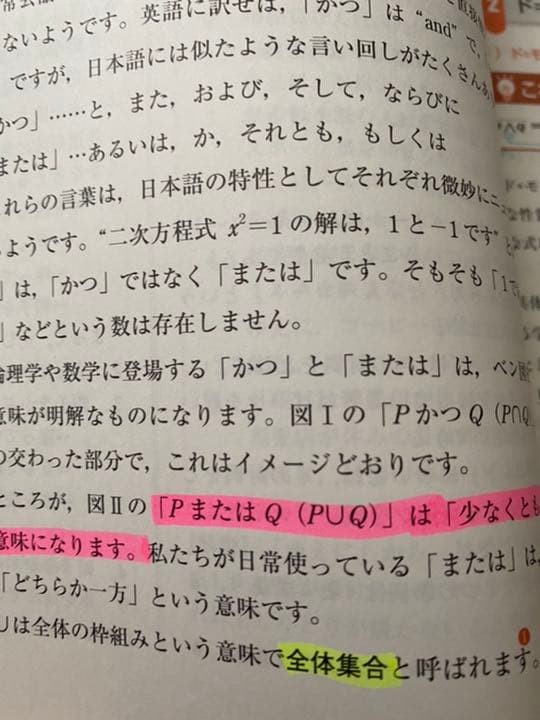 ないようです。英語に訳せば，「かつ」は “and” で，
ですが，日本語には似たような言い回しがたくさんあ
かつ」……と，また，および，そして，ならびに
または」…あるいは，か，それとも，もしくは
れらの言葉は，日本語の特性としてそれぞれ微妙にニュ
ようです。“二次方程式 x²=1の解は，1と−1です” と
」は，「かつ」ではなく「または」です。そもそも「1で
」などという数は存在しません。
論理学や数学に登場する「かつ」と「または」は，ベン図
意味が明解なものになります。図Ⅰの「PかつQ（P∩Q
の交わった部分で，これはイメージどおりです。
ところが，図Ⅱの「PまたはQ（P∪Q）」は「少なくとも
意味になります。私たちが日常使っている「または」は，
「どちらか一方」という意味です。
Uは全体の枠組みという意味で全体集合と呼ばれます。
❶